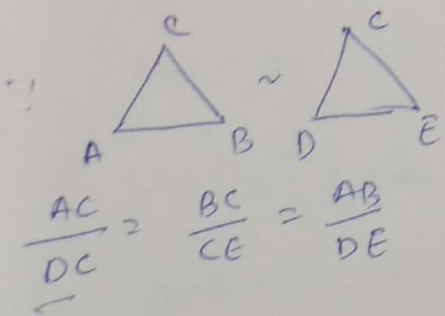 C C
∵ ~
A B D E
AC/DC = BC/CE = AB/DE